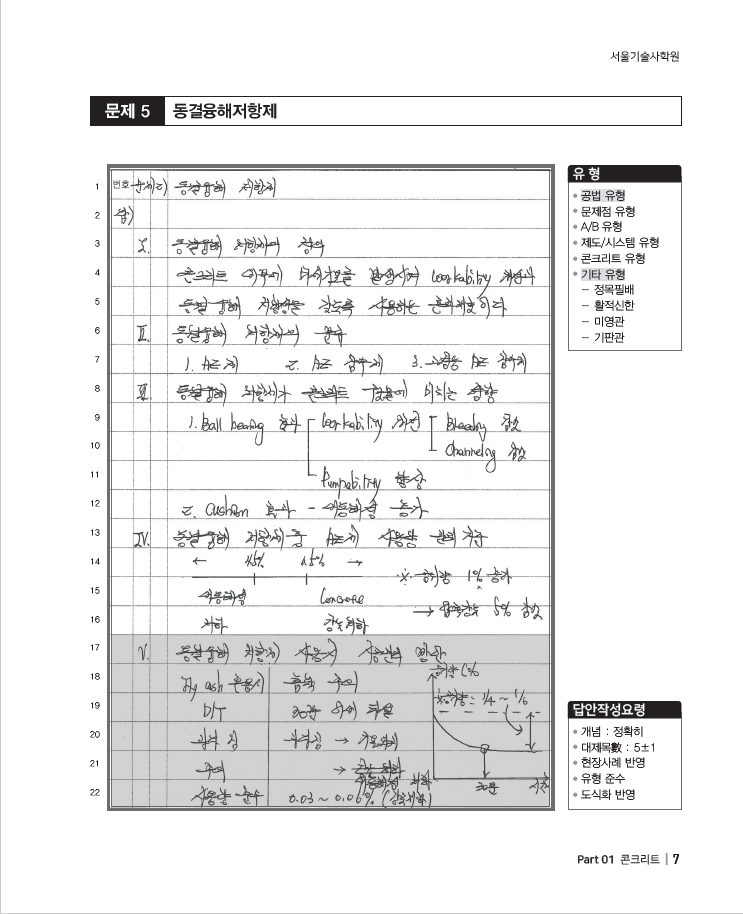 서울기술사학원
문제 5 동결융해저항제
1 번호 문제2) 동결융해 저항제
2 답)
3 Ⅰ. 동결융해 저항제의 정의
4 콘크리트 내부에 미세기포를 발생시켜 workability 개선과
5 동결융해 저항성을 갖도록 사용하는 혼화재료이다
6 Ⅱ. 동결융해 저항제의 분류
7 1. AE제 2. AE 감수제 3. 고성능 AE 감수제
8 Ⅲ. 동결융해 저항제가 콘크리트 구조물에 미치는 영향
9 1. Ball bearing 효과 workability 개선 Bleeding 감소
10 Channeling 감소
11 Pumpability 향상
12 2. Cushion 효과 - 내동해성 증가
13 Ⅳ. 동결융해 저항제 중 AE제 사용량 관리 기준
14 ← →
15 내동해성 Concrete ※ 공기량 1% 증가
16 저하 강도저하 → 압축강도 5% 감소
17 Ⅴ. 동결융해 저항제 사용시
18 Fly ash 혼용시 흡착 주의 공기량(%)
19 30분 = 1/4 ~ 1/6
20 다짐 → 기포
21 → 강도 저하
내동해성 저하
22 사용량 준수 0.03 ~ 0.06% (강도저하) 30분 시간
유 형
• 공법 유형
• 문제점 유형
• A/B 유형
• 제도/시스템 유형
• 콘크리트 유형
• 기타 유형
– 정목필배
– 활적신한
– 미영관
– 기판관
답안작성요령
• 개념 : 정확히
• 대제목數 : 5±1
• 현장사례 반영
• 유형 준수
• 도식화 반영
Part 01 콘크리트 | 7